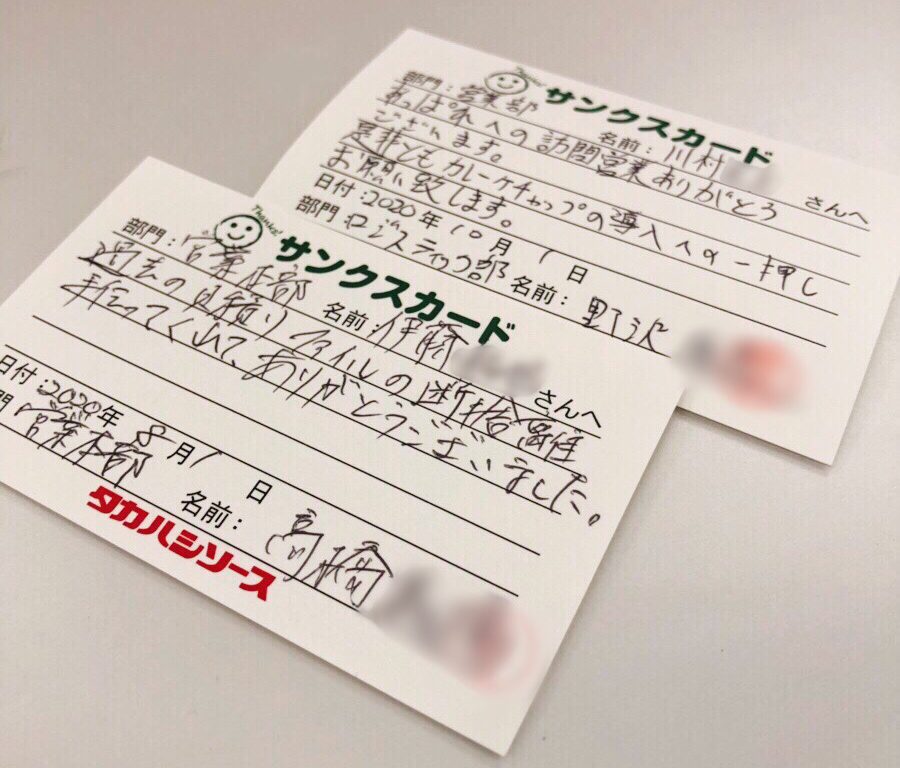 Thanks!
サンクスカード
部門:営業部
名前:川村 さんへ
あっぱれへの訪問営業ありがとう
ございます。
是非ともカレーケチャップの導入への一押し
お願い致します。
日付:2020年10月1日
部門 ロジスティック部 名前:野沢
Thanks!
サンクスカード
部門:営業本部
名前:伊藤 さんへ
過去の見積りファイルの断捨離
手伝ってくれて、ありがとうございました。
日付:2020年8月1日
門 営業本部 名前:高橋
タカハシソース